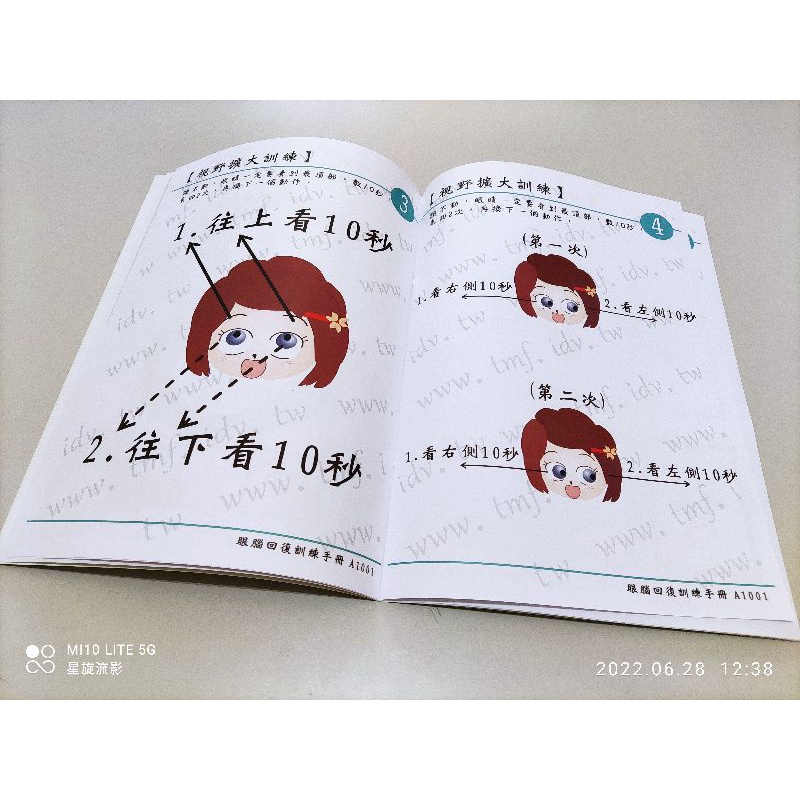 【視野擴大訓練】
頭不動，眼睛一定要看到最頂部，數10秒
來回2次，再接下一個動作。
3
1.往上看10秒
2.往下看10秒
眼腦回復訓練手冊 A1001
【視野擴大訓練】
頭不動，眼睛一定要看到最頂部，數10秒
來回2次，再接下一個動作。
4
(第一次)
1.看右側10秒
2.看左側10秒
(第二次)
1.看右側10秒
2.看左側10秒
眼腦回復訓練手冊 A1001
www.tmf.idv.tw
MI10 LITE 5G
星旋流影
2022.06.28 12:38